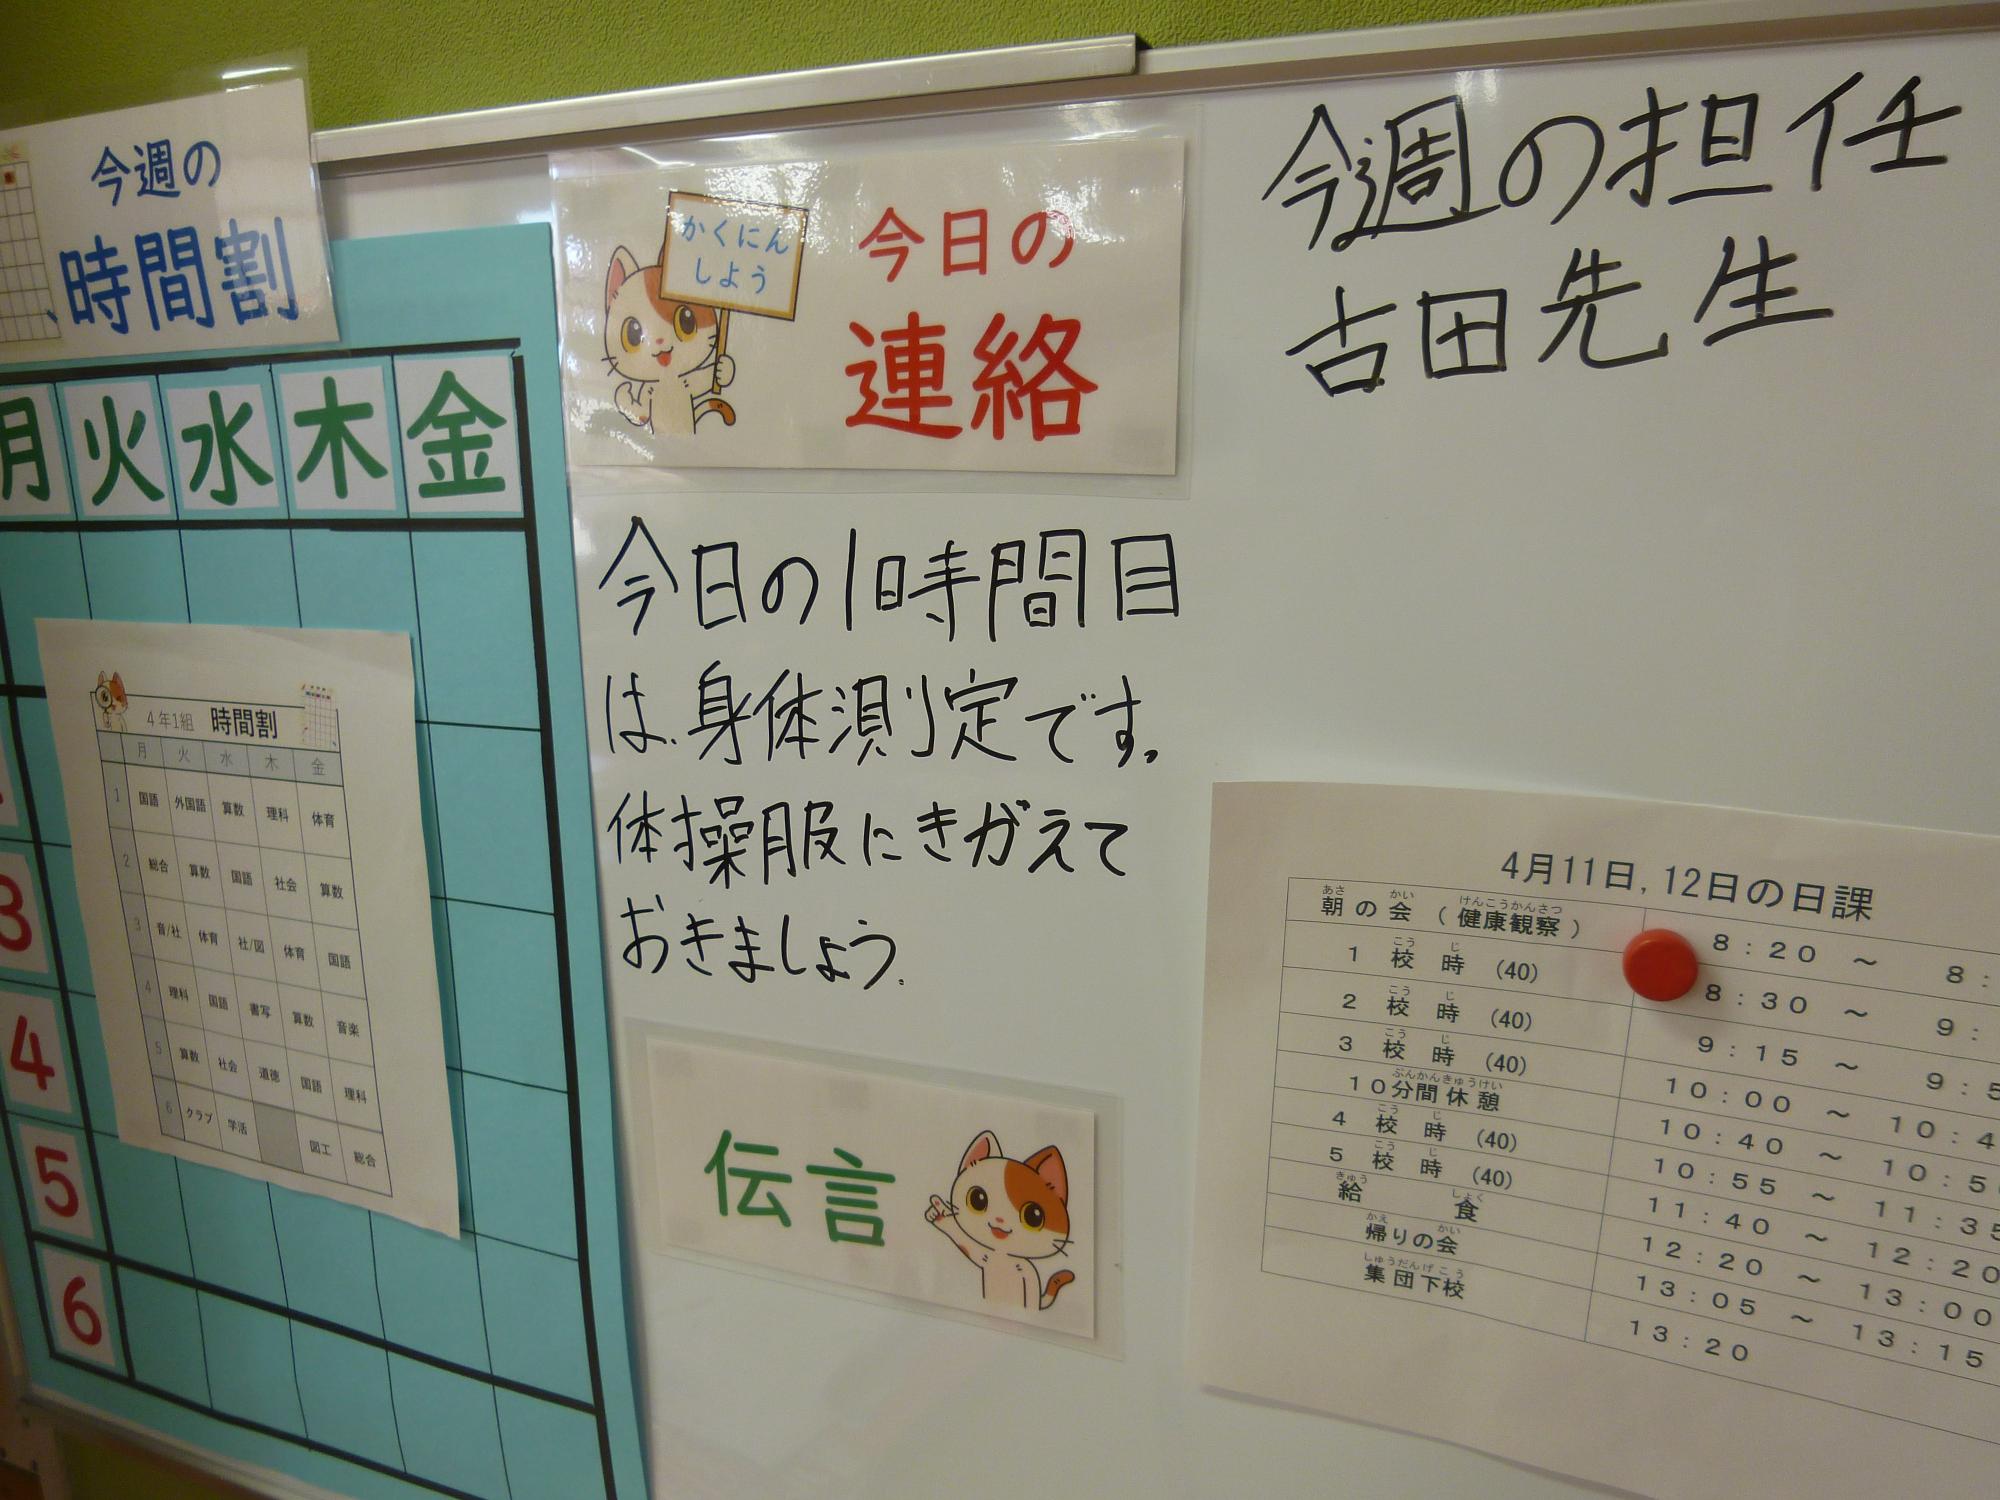 今週の
時間割
月 火 水 木 金
3
4
5
6
4年1組 時間割
月 火 水 木 金
1 国語 外国語 算数 理科 体育
2 総合 算数 国語 社会 算数
3 音/社 体育 社/図 体育 国語
4 理科 国語 書写 算数 音楽
5 算数 社会 道徳 国語 理科
6 クラブ 学活 図工 総合
かくにん
しよう
今日の
連絡
今日の1時間目
は、身体測定です。
体操服にきがえて
おきましょう。
伝言
今週の担任
吉田先生
4月11日,12日の日課
あさ かい けんこうかんさつ
朝の会(健康観察) 8:20 ~ 8:
こう じ
1校時(40) 8:30 ~ 9:
こう じ
2校時(40) 9:15 ~ 9:5
こう じ
3校時(40) 10:00 ~ 10:4
ぶんかんきゅうけい
10分間休憩 10:40 ~ 10:50
こう じ
4校時(40) 10:55 ~ 11:35
こう じ
5校時(40) 11:40 ~ 12:20
きゅう しょく
給食 12:20 ~ 13:00
かえ かい
帰りの会 13:05 ~ 13:15
しゅうだんげこう
集団下校 13:20